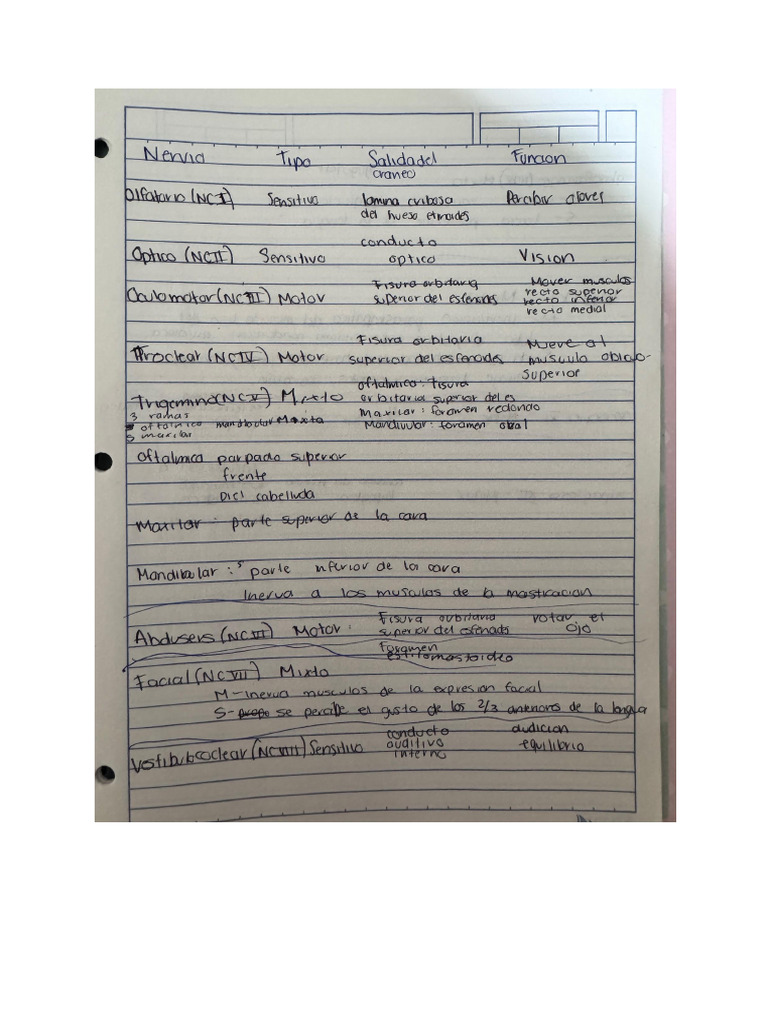 Nervio Tipo Salida del craneo Funcion
Olfatorio (NC I) Sensitivo lamina cribosa Percibir olores
del hueso etmoides
conducto
Optico (NC II) Sensitivo optico Vision
Fisura orbitaria Mover musculos
Oculomotor (NC III) Motor superior del esfenoides recto superior
recto inferior
recto medial
Fisura orbitaria Mueve al
Troclear (NC IV) Motor superior del esfenoides musculo oblicuo
superior
oftalmica: fisura
Trigemino (NC V) Mixto orbitaria superior del es
3 ramas Maxilar: foramen redondo
s oftalmico mandibular Mixta Mandivular: foramen oval
s maxilar
Oftalmica parpado superior
frente
Piel cabelluda
Maxilar: parte superior de la cara
Mandibular: s parte inferior de la cara
Inerva a los musculos de la masticacion
Fisura orbitaria rotar el
Abdusers (NC VI) Motor: superior del esfenoides ojo
Foramen
estilomastoideo
Facial (NC VII) Mixto
M- Inerva musculos de la expresion facial
S- se percibe el gusto de los 2/3 anteriores de la lengua
conducto audicion
Vestibulocclear (NC VIII) Sensitivo auditivo equilibrio
interno